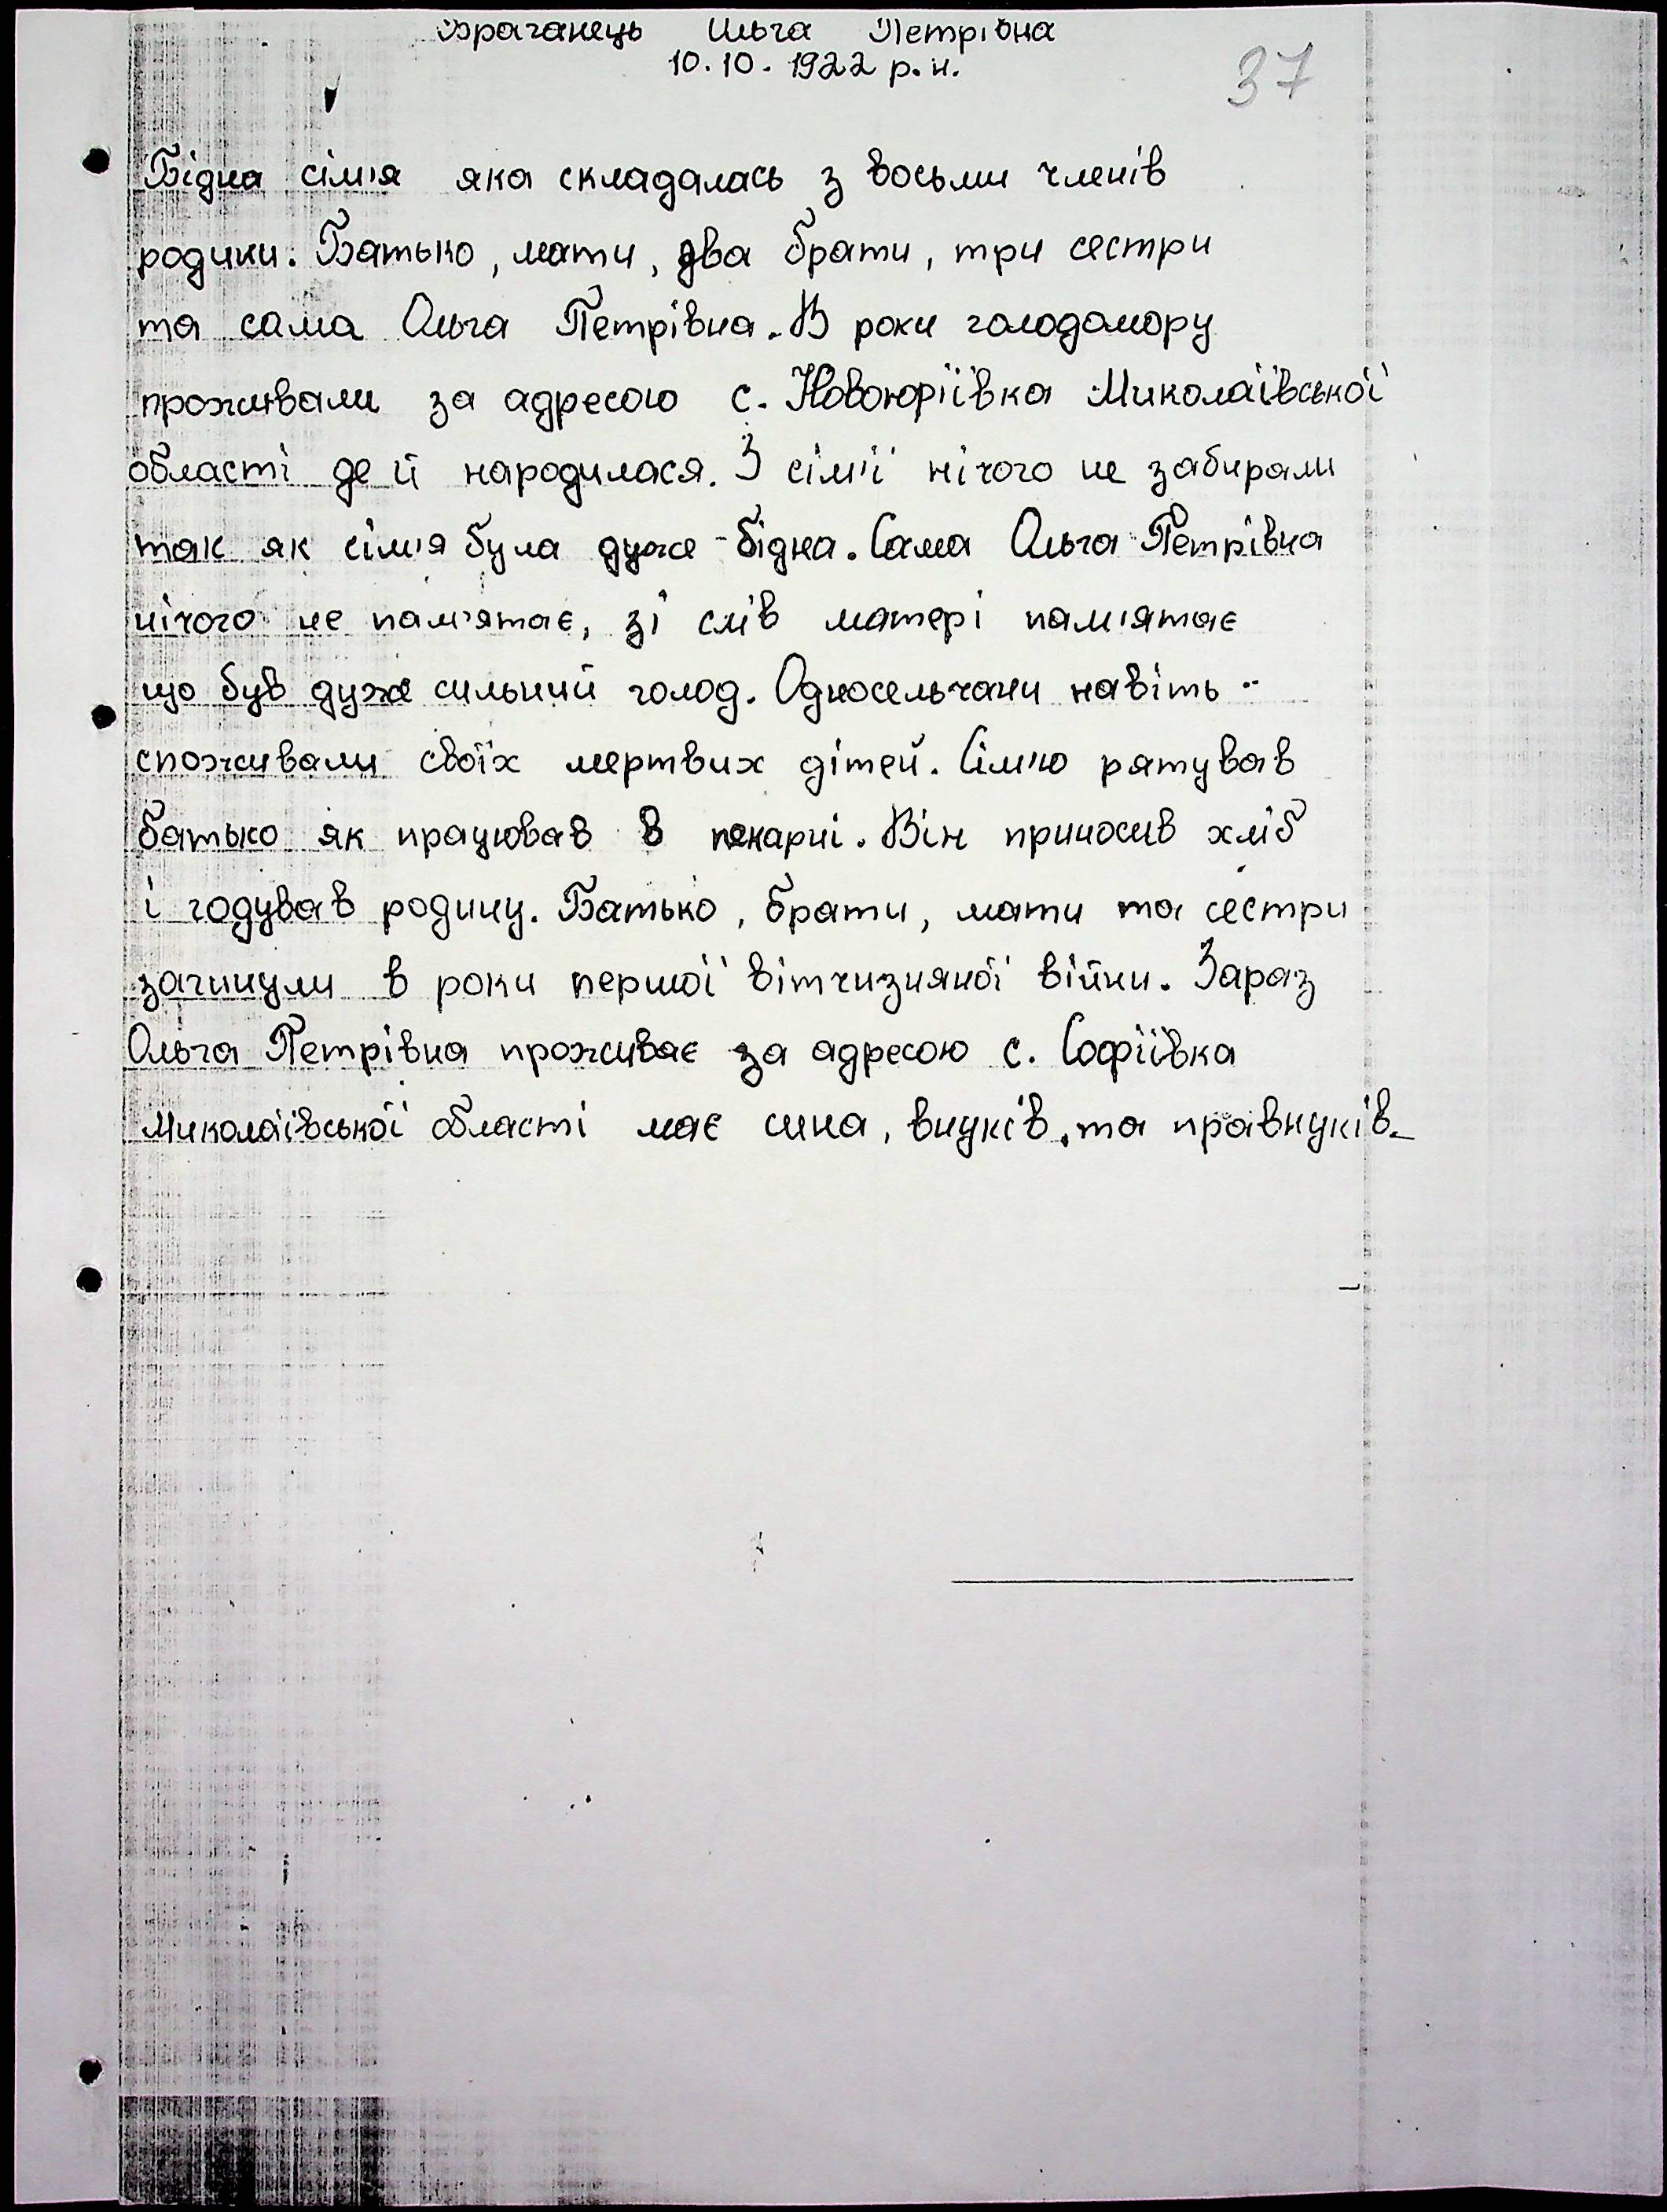 Браганець Ольга Петрівна
10.10.1922 р.н.
37
Бідна сім'я яка складалась з восьми членів
родини. Батько, мати, два брати, три сестри
та сама Ольга Петрівна. В роки голодомору
проживали за адресою с. Новоюріївка Миколаївської
області де й народилася. З сім'ї нічого не забирали
так як сім'я була дуже бідна. Сама Ольга Петрівна
нічого не пам'ятає, зі слів матері пам'ятає
що був дуже сильний голод. Односельчани навіть
споживали своїх мертвих дітей. Сім'ю рятував
батько як працював в пекарні. Він приносив хліб
і годував родину. Батько, брати, мати та сестри
загинули в роки першої вітчизняної війни. Зараз
Ольга Петрівна проживає за адресою с. Софіївка
Миколаївської області має сина, внуків, та правнуків.